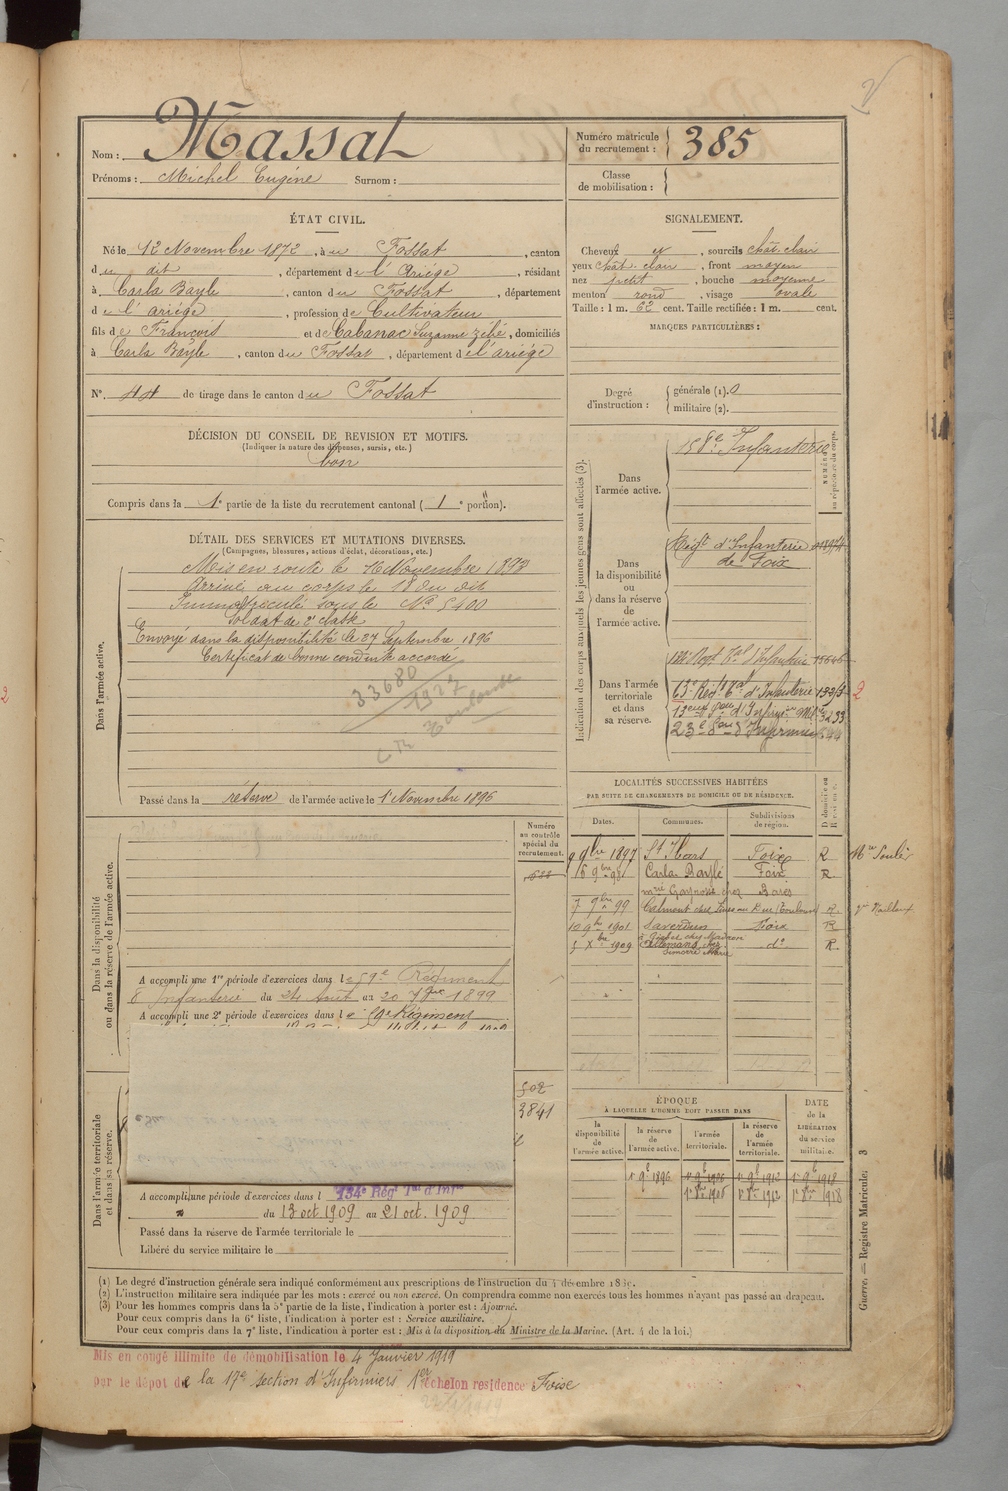 Nom : Massat
Prénoms : Michel Eugène Surnom :
Numéro matricule du recrutement : 385
Classe de mobilisation :
ÉTAT CIVIL.
Né le 12 Novembre 1872, à u Fossat, canton
du dit, département de l'Ariège, résidant
à Carla Bayle, canton du Fossat, département
de l'ariége, profession de Cultivateur
fils de François et de Cabanac Suzanne zébé, domiciliés
à Carla Bayle, canton du Fossat, département de l'ariége
N° 44 de tirage dans le canton du Fossat
SIGNALEMENT.
Cheveux et, sourcils chât. clair
yeux chât. clair, front moyen
nez petit, bouche moyenne
menton rond, visage ovale
Taille : 1 m. 62 cent. Taille rectifiée : 1 m. cent.
MARQUES PARTICULIÈRES :
Degré d'instruction : générale (1). 0
militaire (2).
DÉCISION DU CONSEIL DE REVISION ET MOTIFS.
(Indiquer la nature des dispenses, sursis, etc.)
bon
Compris dans la 1e partie de la liste du recrutement cantonal (1e portion).
DÉTAIL DES SERVICES ET MUTATIONS DIVERSES.
(Campagnes, blessures, actions d'éclat, décorations, etc.)
Dans l'armée active.
Mis en route le 16 Novembre 1893
Arrivé au corps le 18 du dit
Immatriculé sous le N° 5400
Soldat de 2e classe
Envoyé dans la disponibilité le 27 Septembre 1896
Certificat de bonne conduite accordé
33680
1927
Toulouse
Passé dans la réserve de l'armée active le 1er Novembre 1896
Indication des corps auxquels les jeunes gens sont affectés (3).
NUMÉROS au répertoire du corps.
Dans l'armée active.
158e Infanterie
Dans la disponibilité ou dans la réserve de l'armée active.
Régt d'Infanterie
de Foix
Dans l'armée territoriale et dans sa réserve.
63e Régt tal d'Infanterie
2
LOCALITÉS SUCCESSIVES HABITÉES
PAR SUITE DE CHANGEMENTS DE DOMICILE OU DE RÉSIDENCE.
Dates. Communes. Subdivisions de région. D domicile ou R résidence.
9 9bre 1897 St Ybars Foix R
16 9bre 98 Carla Bayle Foix R
7 9bre 99 Calmont R
10 9b 1901 Saverdun Foix R
1 Xbre 1909 do R
Dans la disponibilité ou dans la réserve de l'armée active.
Numéro au contrôle spécial du recrutement.
A accompli une 1re période d'exercices dans le 59e Régiment
d'Infanterie du 24 Août au 20 7bre 1899
A accompli une 2e période d'exercices dans le 59e Régiment
502
3841
Dans l'armée territoriale et dans sa réserve.
A accompli une période d'exercices dans l 134e Régt Tal d'Infie
du 13 oct 1909 au 21 oct. 1909
Passé dans la réserve de l'armée territoriale le
Libéré du service militaire le
ÉPOQUE
A LAQUELLE L'HOMME DOIT PASSER DANS
la disponibilité de l'armée active. la réserve de l'armée active. l'armée territoriale. la réserve de l'armée territoriale. DATE de la LIBÉRATION du service militaire.
1er 9b 1896 1er 9b 1906 1er 9b 1912 1er 9b 1918
1er 8bre 1906 1er 8bre 1912 1er 8bre 1918
Guerre. — Registre Matricule. 3
(1) Le degré d'instruction générale sera indiqué conformément aux prescriptions de l'instruction du 4 décembre 1889.
(2) L'instruction militaire sera indiquée par les mots : exercé ou non exercé. On comprendra comme non exercés tous les hommes n'ayant pas passé au drapeau.
(3) Pour les hommes compris dans la 5e partie de la liste, l'indication à porter est : Ajourné.
Pour ceux compris dans la 6e liste, l'indication à porter est : Service auxiliaire.
Pour ceux compris dans la 7e liste, l'indication à porter est : Mis à la disposition du Ministre de la Marine. (Art. 4 de la loi.)
Mis en congé illimité de démobilisation le 4 Janvier 1919
par le dépôt de la 17e section d'Infirmiers 1er échelon résidence Foix